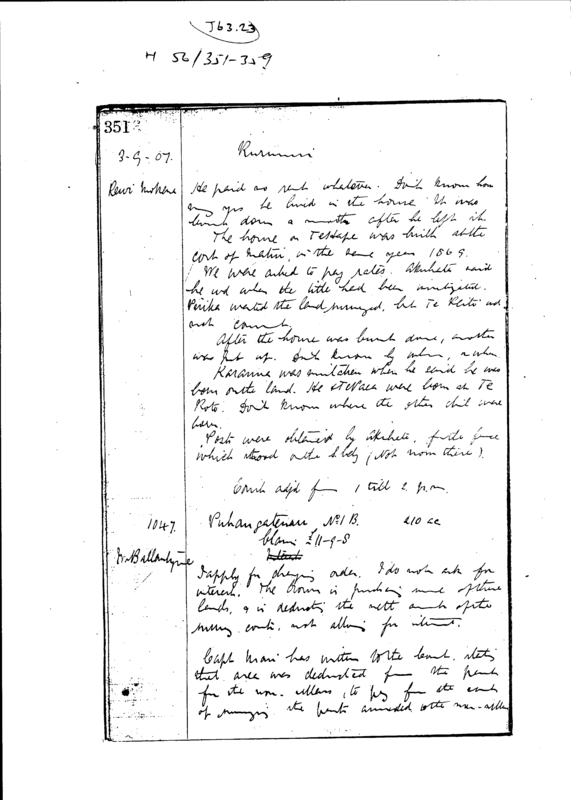 J63.23
H 56/351-359
351
3-9-07.
Rewi Mokena He paid no rent whatever. Don't know how
many yrs he lived in the house It was
burnt down a month after he left it.
The house on TeHape was built at the
cost of Matiu, in the same year 1869.
We were asked to pay rates. Akuhata said
he wd when the title had been investigated.
Pirika wanted the land surveyed, but Te Reiti wd
not consent.
After the house was burnt down, another
was put up. Don't know by whom, or when.
Karauna was mistaken when he said he was
born on the land. He & were born at Te
Roto. Don't know where the other chil were
born.
Posts were obtained by Akuhata, for the fence
which stood on the bdy (Not now there).
Court adjd from 1 till 2 p.m.
1047. No 1 B. 210 ac
Claim £11-9-8
Mr Ballantyne
I apply for charging order. I do not ask for
interest. The Crown is purchasing some of these
lands, & is deducting the nett amount of the
survey costs, not allowing for interest.
Capt Mair has written to the Court, stating
that area was deducted from the
for the non-sellers, to pay for the cost
of surveying the awarded to the non-sellers